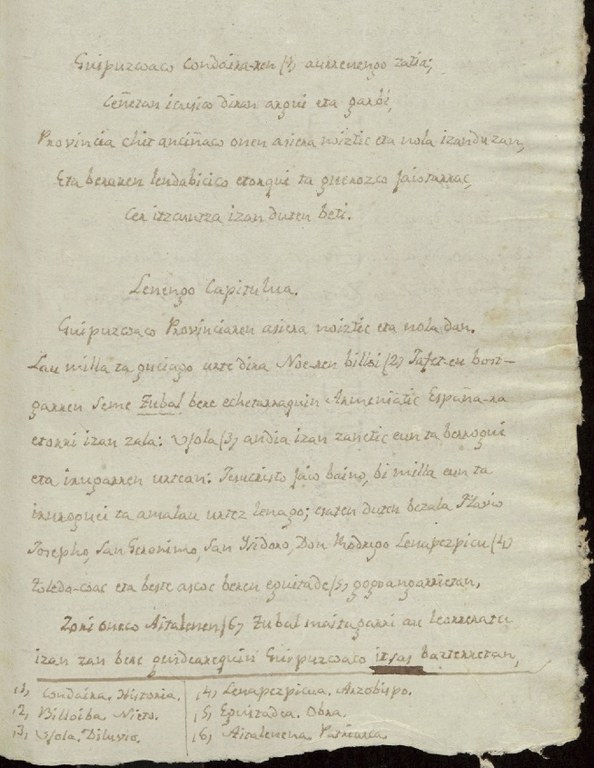 Guipuzcoaco condaira-ren (1) aurrenengo zatia;
Ceñetan icusico diran argui eta garbi,
Provincia chit anciñaco onen asiera noiztic eta nola izanduzan,
Eta beraren lendabicico etorqui ta guerozco jaiotarrac,
Cer itzcuntza izan duten beti.
Lenengo Capitulua.
Guipuzcoaco Provinciaren asiera noiztic eta nola dan.
Lau milla ta gueiago urte dira Noe-ren billoi (2) Jafet-en bost-
garren seme Tubal bere echetarraquin Armeniatic España-ra
etorri izan zala: Ujola (3) andia izan zanetic eun ta berrogui
eta irugarren urtean: Jesucristo jaio baino, bi milla eun ta
iruroguei ta amalau urtez lenago; esaten duten bezala Flavio
Josepho, San Geronimo, San Isidoro, Don Rodrigo Lenapezpicu (4)
Toledo-coac eta beste ascoc beren eguitade (5) gogoangarrietan,
Zori oneco Aitalenen (6) Tubal maitagarri au leorreratu
izan zan bere guideareguin Guipuzcoaco itsas bazterretan,
(1) Condaira. Historia.
(2) Billoiba. Nieto.
(3) Ujola. Diluvio.
(4) Lenapezpicua. Arzobispo.
(5) Eguitadea. Obra.
(6) Aitalenena. Patriarca.